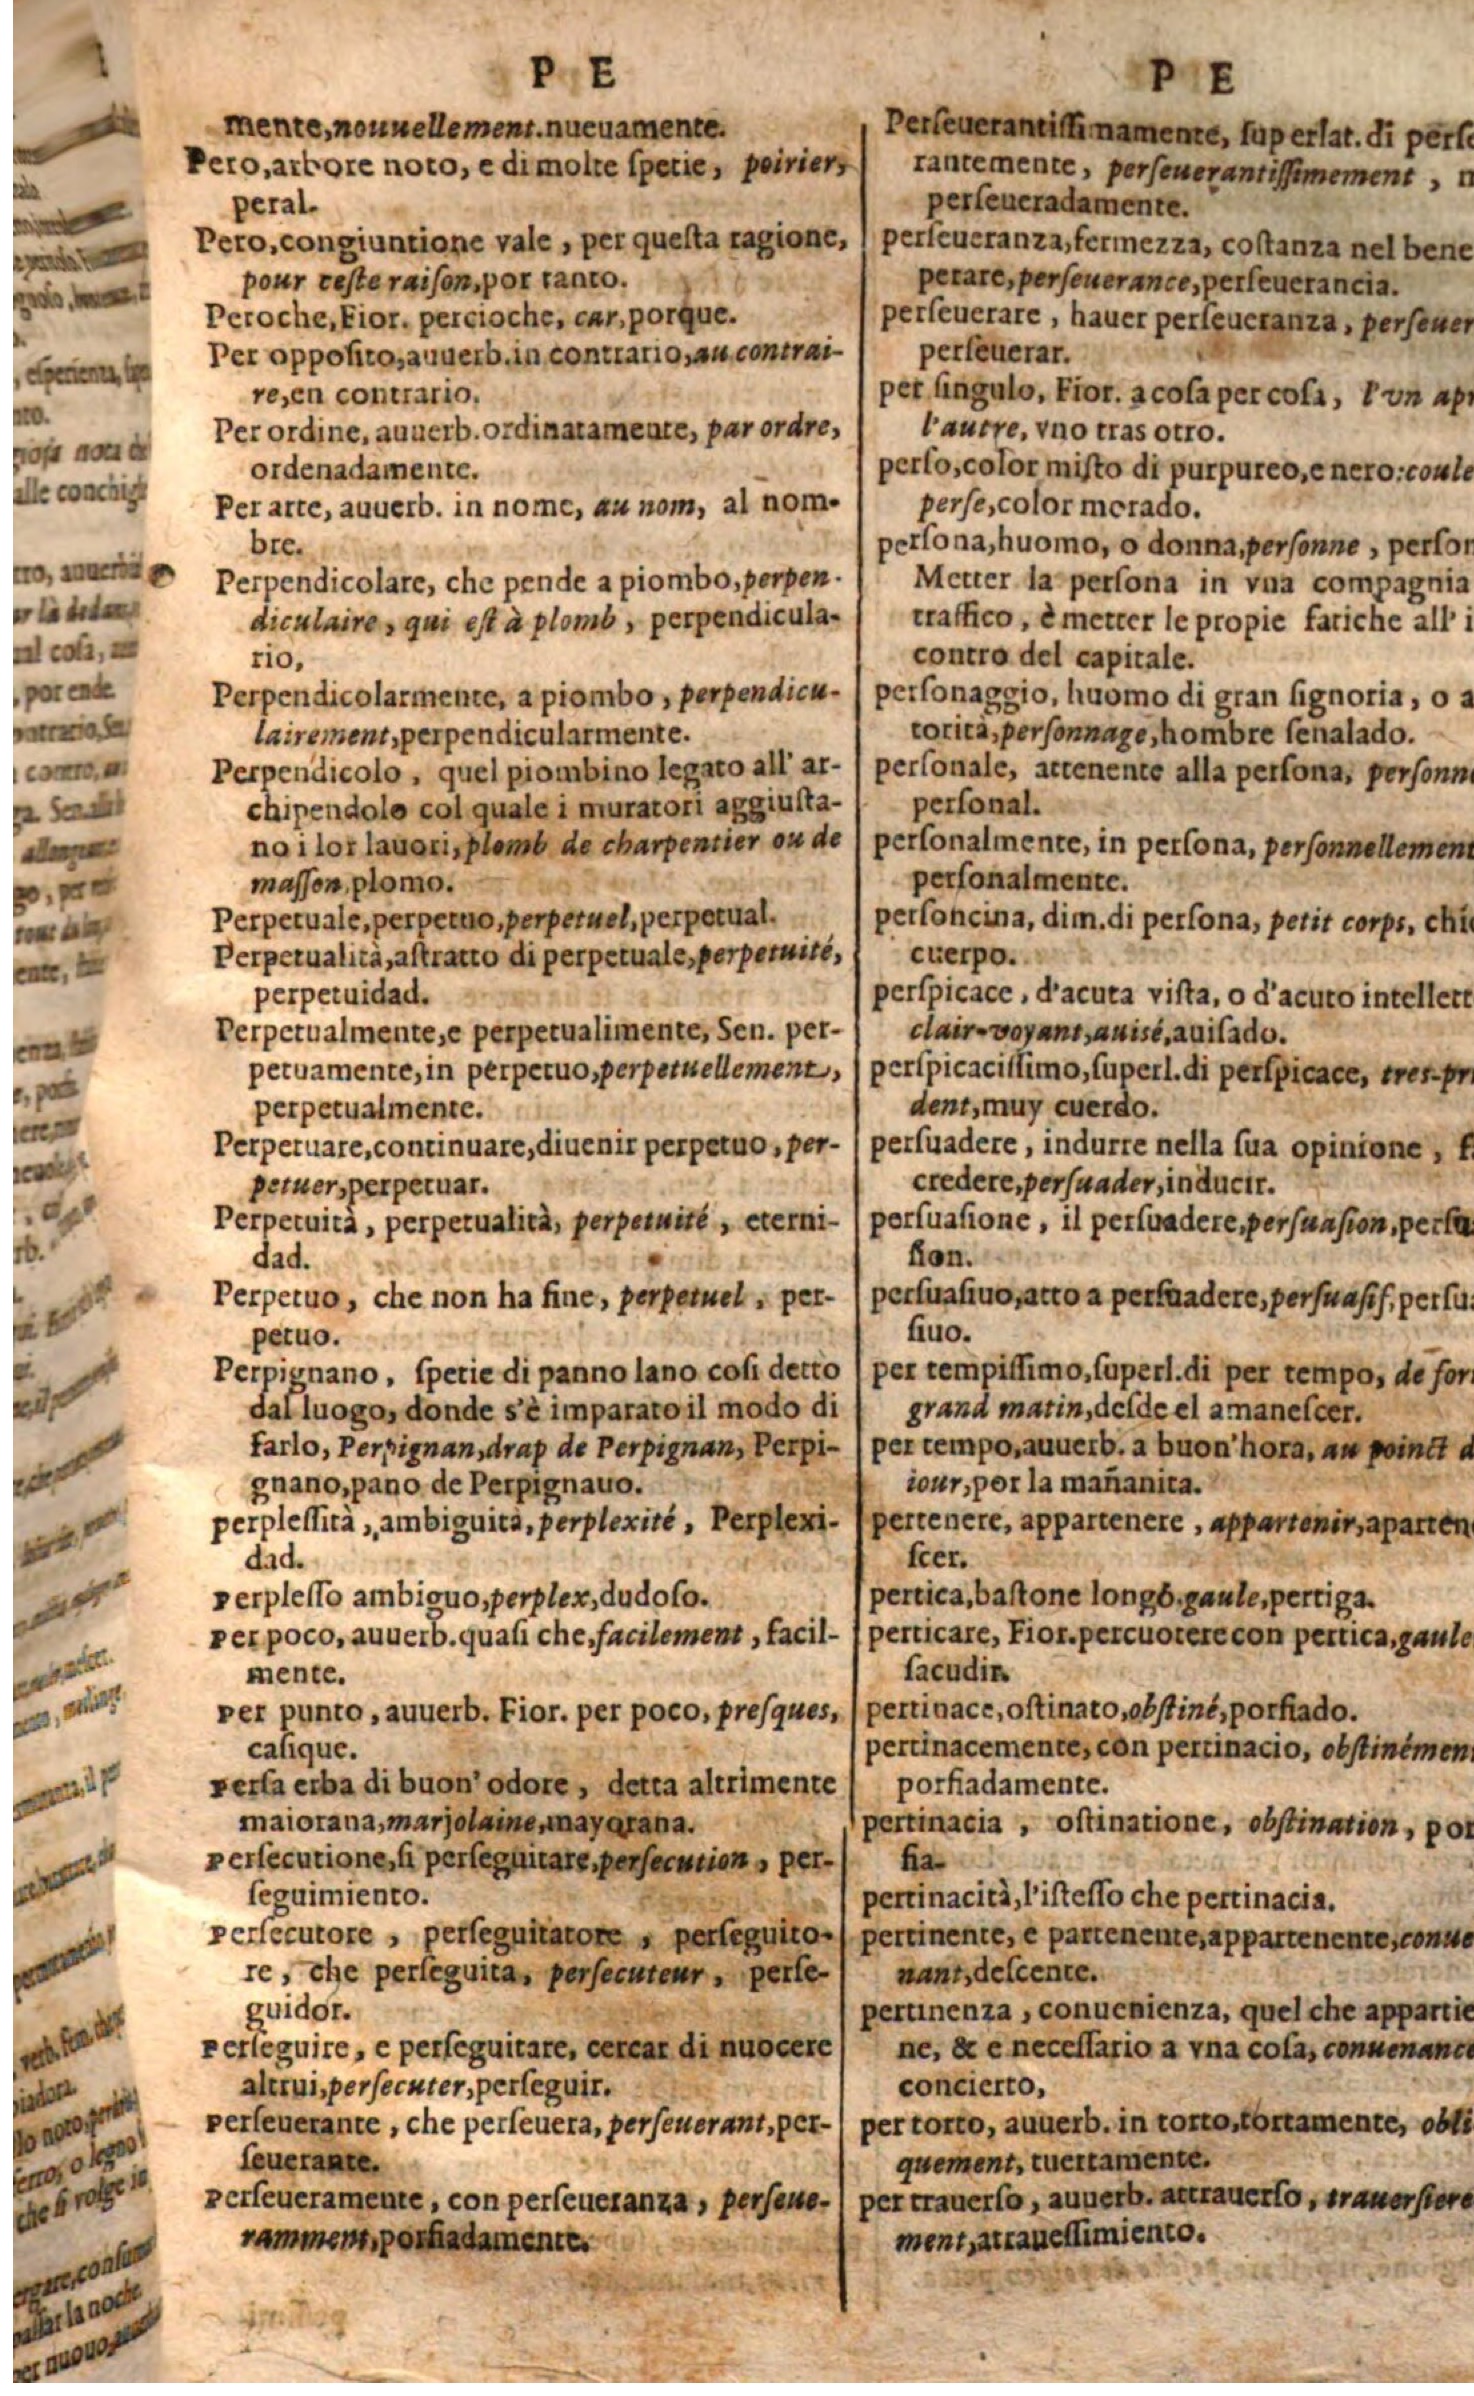 P E
mente,nouuellement.nueuamente.
Pero,arbore noto, e di molte ſpetie, poirier,
peral.
Pero,congiuntione vale, per queſta ragione,
pour ceſte raiſon,por tanto.
Peroche,Fior. percioche, car,porque.
Per oppoſito,auuerb.in contrario,au contrai-
re,en contrario.
Per ordine, auuerb.ordinatamente, par ordre,
ordenadamente.
Per arte, auuerb. in nome, au nom, al nom-
bre.
Perpendicolare, che pende a piombo,perpen-
diculaire, qui eſt à plomb, perpendicula-
rio,
Perpendicolarmente, a piombo, perpendicu-
lairement,perpendicularmente.
Perpendicolo, quel piombino legato all' ar-
chipendolo col quale i muratori aggiuſta-
no i lor lauori, plomb de charpentier ou de
maſſon,plomo.
Perpetuale,perpetuo,perpetuel,perpetual.
Perpetualità,aſtratto di perpetuale,perpetuité,
perpetuidad.
Perpetualmente,e perpetualimente, Sen. per-
petuamente,in perpetuo,perpetuellement,
perpetualmente.
Perpetuare,continuare,diuenir perpetuo, per-
petuer,perpetuar.
Perpetuità, perpetualità, perpetuité, eterni-
dad.
Perpetuo, che non ha fine, perpetuel, per-
petuo.
Perpignano, ſpetie di panno lano coſi detto
dal luogo, donde s'è imparato il modo di
farlo, Perpignan,drap de Perpignan, Perpi-
gnano,pano de Perpignauo.
perpleſſità, ambiguità, perplexité, Perplexi-
dad.
perpleſſo ambiguo,perplex,dudoſo.
per poco, auuerb.quaſi che,facilement, facil-
mente.
per punto, auuerb. Fior. per poco, preſques,
caſique.
perſa erba di buon' odore, detta altrimente
maiorana,marjolaine,mayorana.
perſecutione,ſi perſeguitare,perſecution, per-
ſeguimiento.
perſecutore, perſeguitatore, perſeguito-
re, che perſeguita, perſecuteur, perſe-
guidor.
perſeguire, e perſeguitare, cercar di nuocere
altrui,perſecuter,perſeguir.
perſeuerante, che perſeuera, perſeuerant,per-
ſeuerante.
perſeueramente, con perſeueranza, perſeue-
ramment,porfiadamente.
P E
Perſeuerantiſſimamente, ſuperlat. di perſe
rantemente, perſeuerantiſſimement,
perſeueradamente.
perſeueranza,fermezza, coſtanza nel bene
perare,perſeuerance,perſeuerancia.
perſeuerare, hauer perſeueranza, perſeuer
perſeuerar.
per ſingulo, Fior. a coſa per coſa, l'vn apr
l'autre, vno tras otro.
perſo,color miſto di purpureo,e nero:coule
perſe,color morado.
perſona,huomo, o donna,perſonne, perſon
Metter la perſona in vna compagnia
traffico, è metter le propie fatiche all' i
contro del capitale.
perſonaggio, huomo di gran ſignoria, o a
torità,perſonnage,hombre ſenalado.
perſonale, attenente alla perſona, perſonne
perſonal.
perſonalmente, in perſona, perſonnellement
perſonalmente.
perſoncina, dim.di perſona, petit corps, chi
cuerpo.
perſpicace, d'acuta viſta, o d'acuto intellett
clair-voyant,auiſé,auiſado.
perſpicaciſſimo,ſuperl.di perſpicace, tres-pru
dent,muy cuerdo.
perſuadere, indurre nella ſua opinione, f
credere,perſuader,inducir.
perſuaſione, il perſuadere,perſuaſion,perſua
ſion.
perſuaſiuo,atto a perſuadere,perſuaſif,perſua
ſiuo.
per tempiſſimo,ſuperl.di per tempo, de fort
grand matin,deſde el amaneſcer.
per tempo,auuerb. a buon'hora, au poinct d
iour,por la mañanita.
pertenere, appartenere, appartenir,aparten
ſcer.
pertica,baſtone longo.gaule,pertiga.
perticare, Fior.percuotere con pertica,gaule
ſacudir.
pertinace,oſtinato,obſtiné,porfiado.
pertinacemente, con pertinacio, obſtinémen
porfiadamente.
pertinacia, oſtinatione, obſtination, por
fia.
pertinacità,l'iſteſſo che pertinacia.
pertinente, e partenente,appartenente,conue
nant,deſcente.
pertinenza, conuenienza, quel che appartie
ne, & e neceſſario a vna coſa, conuenance
concierto,
per torto, auuerb. in torto,tortamente, obli
quement, tuertamente.
per trauerſo, auuerb. attrauerſo, trauerſiere
ment,attraueſſimiento.